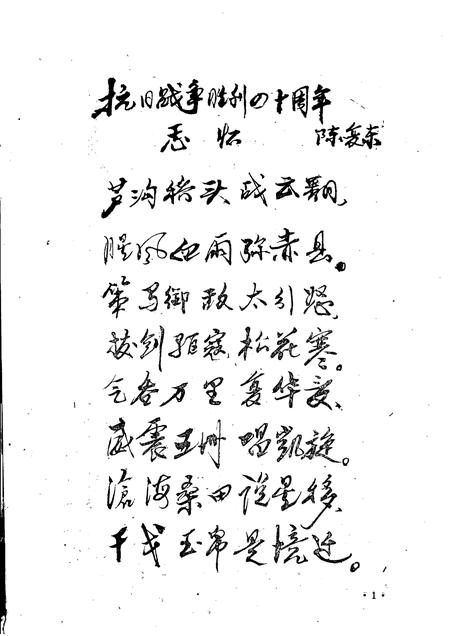 抗日战争胜利四十周年
志怀 陈爱东
芦沟桥头战云翻，
腥风血雨弥赤县。
策马御敌太行怒，
拔剑驱寇松花寒。
气吞万里复华夏，
威震五洲唱凯旋。
沧海桑田说星移，
干戈玉帛是境迁。
·1·